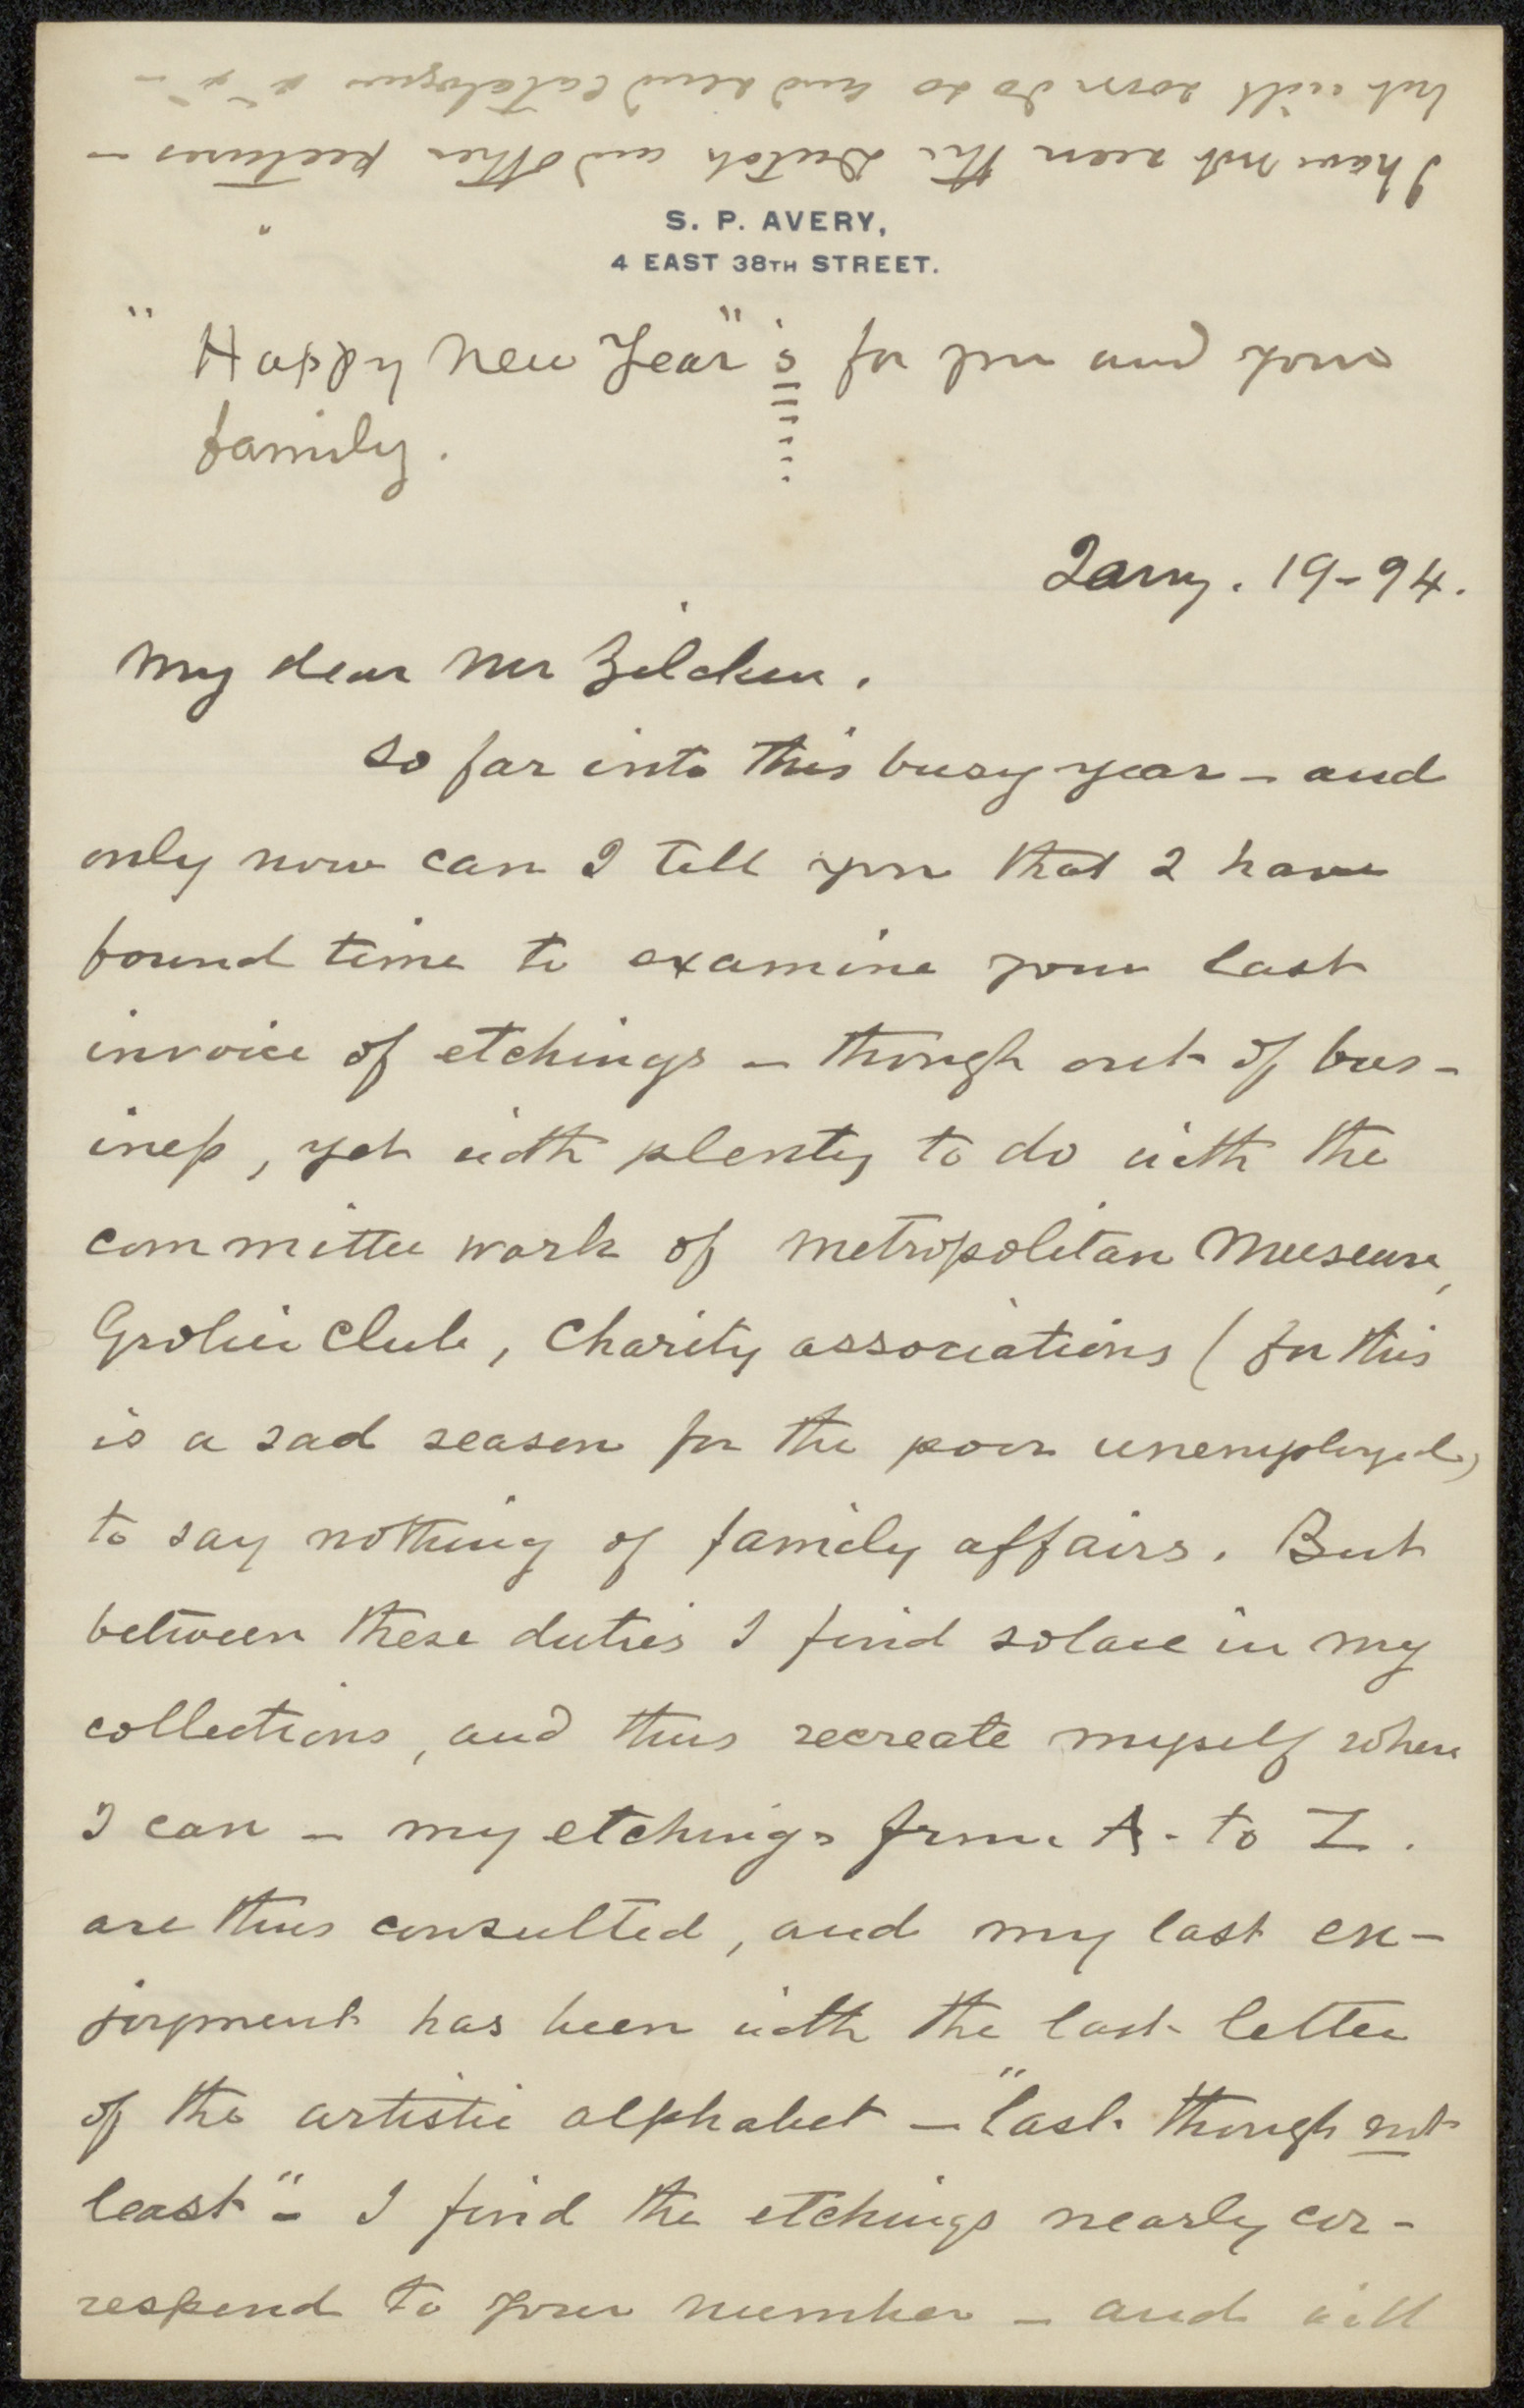 I have not seen the Dutch and other pictures —
but will soon do so and send catalogues
S. P. AVERY,
4 EAST 38TH STREET.
"Happy New Year"s for you and your
family.
Jany. 19-94.
My dear Mr Zilcken.
So far into this busy year — and
only now can I tell you that I have
found time to examine your last
invoice of etchings — though out of bus-
iness, yet with plenty to do with the
committee work of Metropolitan Museum,
Grolier Club, Charity associations (for this
is a sad season for the poor unemployed)
to say nothing of family affairs. But
between these duties I find solace in my
collections, and thus recreate myself when
I can — my etchings from A - to Z.
are thus consulted, and my last en-
joyment has been with the last letter
of the artistic alphabet — "last though not
least" — I find the etchings nearly cor-
respond to your number — and will